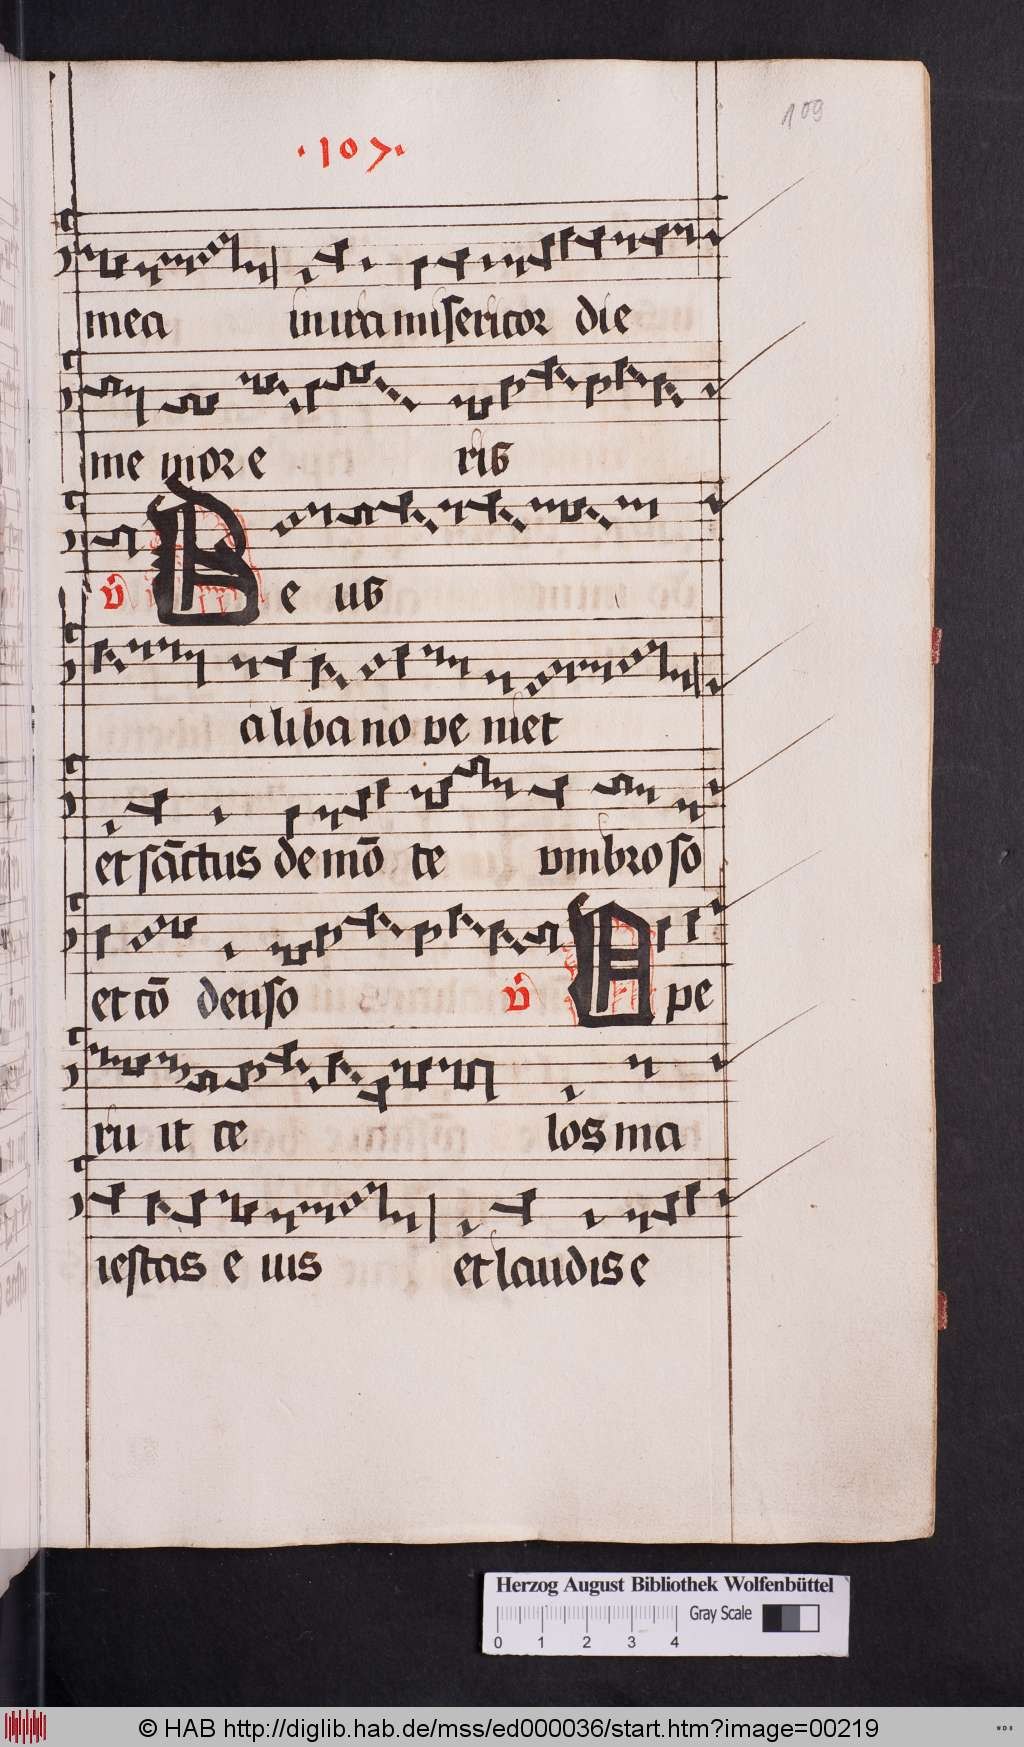 109
·107·
mea in ira misericor die
me mor e ris
v̄ D e us
a libano ve niet
et sāctus de mō te vmbro so
et cō denso v̄ A pe
ru it ce los ma
iestas e ius et laudis e
Herzog August Bibliothek Wolfenbüttel
Gray Scale
0 1 2 3 4
© HAB http://diglib.hab.de/mss/ed000036/start.htm?image=00219